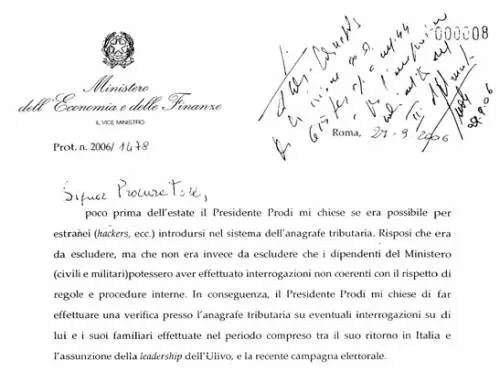 000008
Ministero
dell'Economia e delle Finanze
IL VICE MINISTRO
Roma, 27-9 2006
27.9.06
Prot. n. 2006/ 1478
Signor Procuratore,
poco prima dell'estate il Presidente Prodi mi chiese se era possibile per
estranei (hackers, ecc.) introdursi nel sistema dell'anagrafe tributaria. Risposi che era
da escludere, ma che non era invece da escludere che i dipendenti del Ministero
(civili e militari)potessero aver effettuato interrogazioni non coerenti con il rispetto di
regole e procedure interne. In conseguenza, il Presidente Prodi mi chiese di far
effettuare una verifica presso l'anagrafe tributaria su eventuali interrogazioni su di
lui e i suoi familiari effettuate nel periodo compreso tra il suo ritorno in Italia e
l'assunzione della leadership dell'Ulivo, e la recente campagna elettorale.